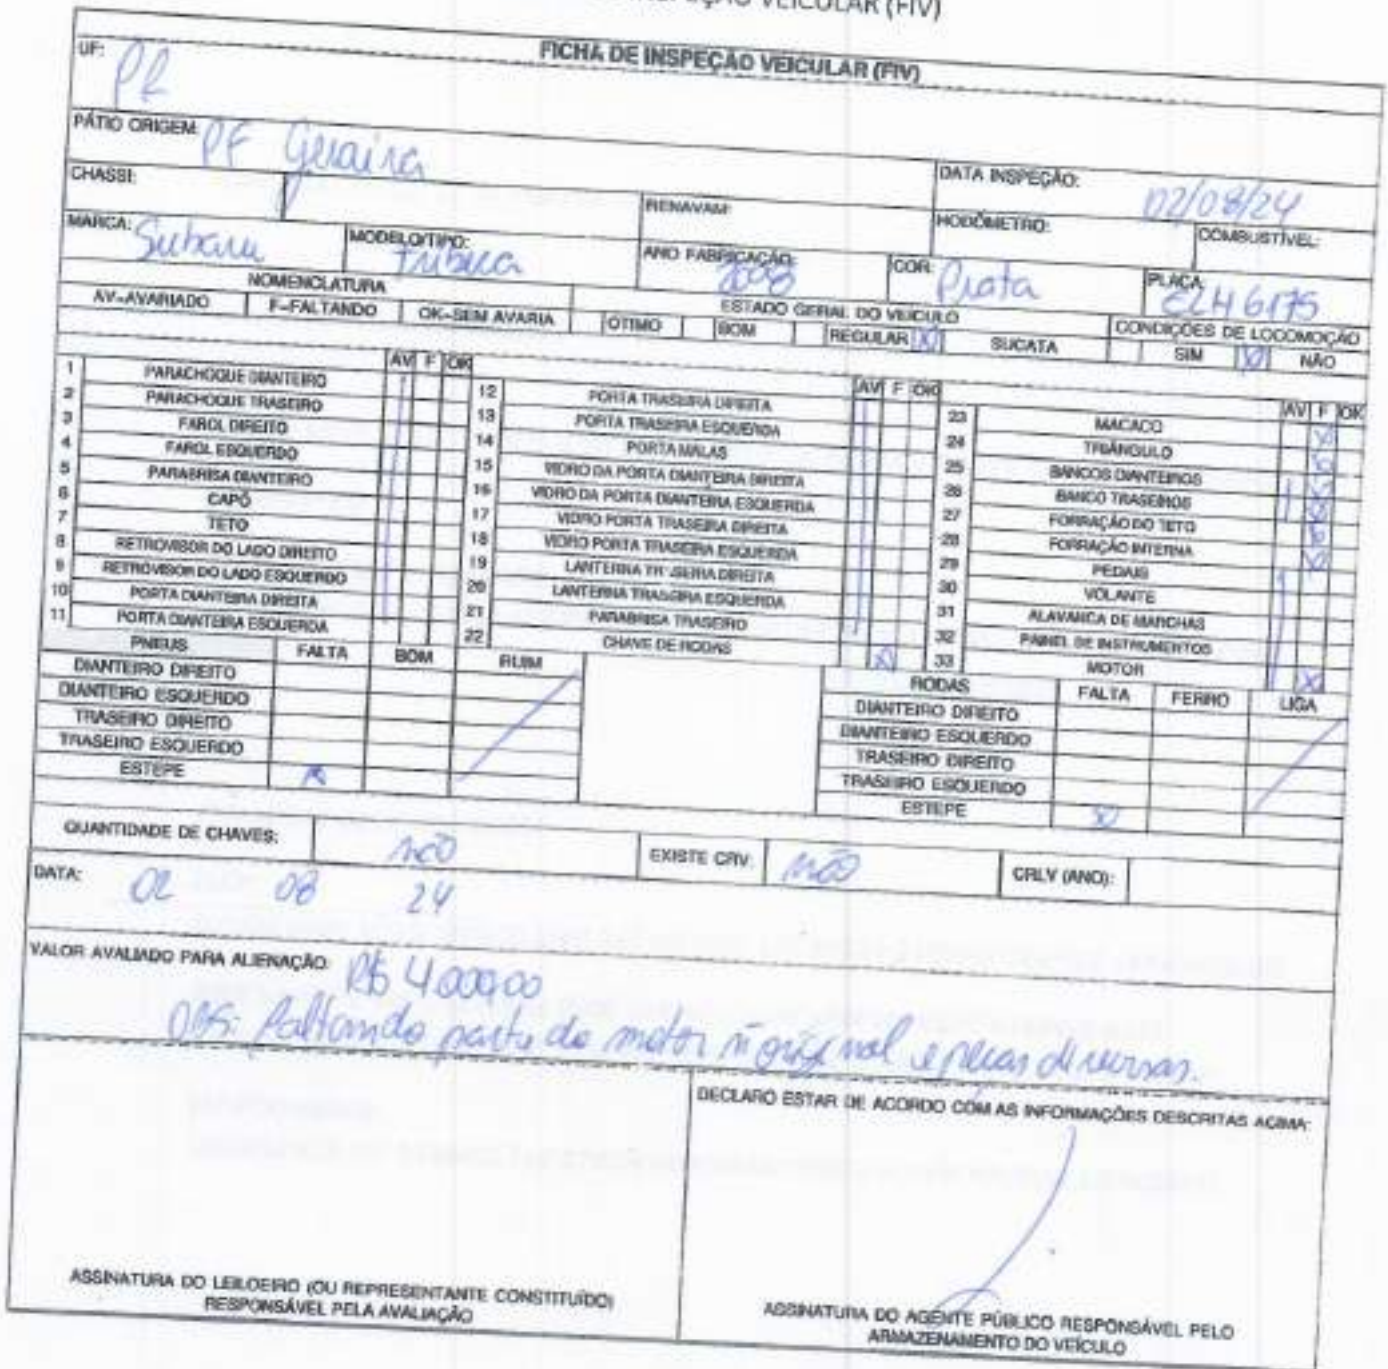 INSPEÇÃO VEICULAR (FIV)
FICHA DE INSPEÇÃO VEICULAR (FIV)
UF: PR
PÁTIO ORIGEM: PF Guaíra
DATA INSPEÇÃO: 02/08/24
CHASSI:
RENAVAM:
HODÔMETRO:
COMBUSTÍVEL:
MARCA: Subaru
MODELO/TIPO:
ANO FABRICAÇÃO: 2008
COR: Prata
PLACA: ELH 6175
NOMENCLATURA
ESTADO GERAL DO VEÍCULO
CONDIÇÕES DE LOCOMOÇÃO
AV-AVARIADO F-FALTANDO OK-SEM AVARIA ÓTIMO BOM REGULAR X SUCATA SIM X NÃO
AV F OK
1 PARACHOQUE DIANTEIRO
2 PARACHOQUE TRASEIRO
3 FAROL DIREITO
4 FAROL ESQUERDO
5 PARABRISA DIANTEIRO
6 CAPÔ
7 TETO
8 RETROVISOR DO LADO DIREITO
9 RETROVISOR DO LADO ESQUERDO
10 PORTA DIANTEIRA DIREITA
11 PORTA DIANTEIRA ESQUERDA
AV F OK
12 PORTA TRASEIRA DIREITA
13 PORTA TRASEIRA ESQUERDA
14 PORTA MALAS
15 VIDRO DA PORTA DIANTEIRA DIREITA
16 VIDRO DA PORTA DIANTEIRA ESQUERDA
17 VIDRO PORTA TRASEIRA DIREITA
18 VIDRO PORTA TRASEIRA ESQUERDA
19 LANTERNA TRASEIRA DIREITA
20 LANTERNA TRASEIRA ESQUERDA
21 PARABRISA TRASEIRO
22 CHAVE DE RODAS X
AV F OK
23 MACACO X
24 TRIÂNGULO X
25 BANCOS DIANTEIROS X
26 BANCO TRASEIROS X
27 FORRAÇÃO DO TETO X
28 FORRAÇÃO INTERNA X
29 PEDAIS
30 VOLANTE
31 ALAVANCA DE MARCHAS
32 PAINEL DE INSTRUMENTOS
33 MOTOR X
PNEUS FALTA BOM RUIM
DIANTEIRO DIREITO
DIANTEIRO ESQUERDO
TRASEIRO DIREITO
TRASEIRO ESQUERDO
ESTEPE X
RODAS FALTA FERRO LIGA
DIANTEIRO DIREITO
DIANTEIRO ESQUERDO
TRASEIRO DIREITO
TRASEIRO ESQUERDO
ESTEPE X
QUANTIDADE DE CHAVES: não
EXISTE CRV: não
CRLV (ANO):
DATA: 02 08 24
VALOR AVALIADO PARA ALIENAÇÃO: R$ 4.000,00
OBS: Faltando parte do motor ñ original e peças diversas.
DECLARO ESTAR DE ACORDO COM AS INFORMAÇÕES DESCRITAS ACIMA:
ASSINATURA DO LEILOEIRO (OU REPRESENTANTE CONSTITUÍDO)
RESPONSÁVEL PELA AVALIAÇÃO
ASSINATURA DO AGENTE PÚBLICO RESPONSÁVEL PELO
ARMAZENAMENTO DO VEÍCULO